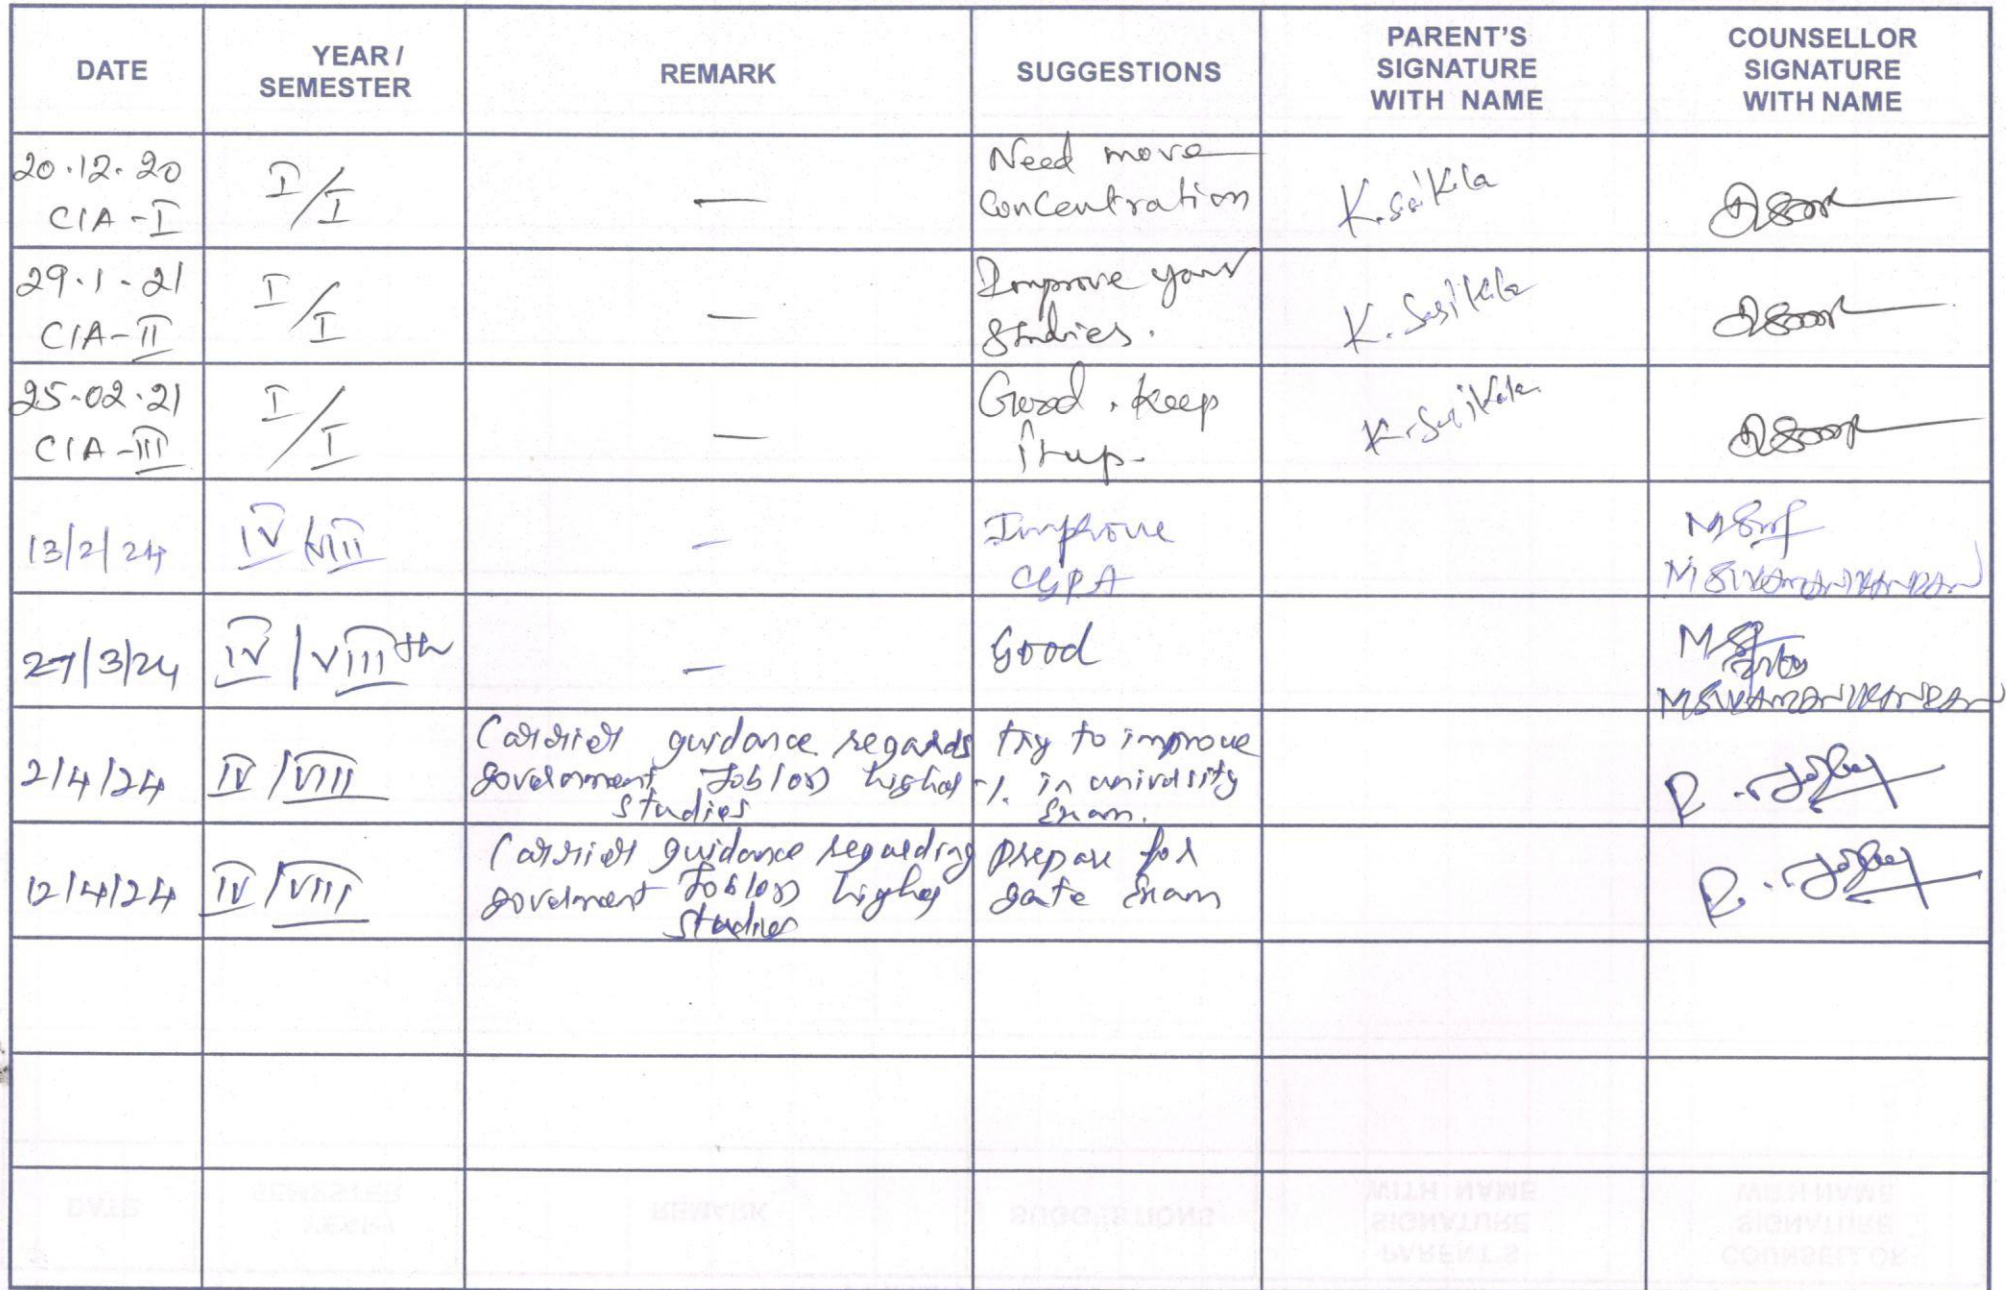 DATE
YEAR /
SEMESTER
REMARK
SUGGESTIONS
PARENT'S
SIGNATURE
WITH NAME
COUNSELLOR
SIGNATURE
WITH NAME
20.12.20
CIA - I
I/I
—
Need more
Concentration
K. Sasikila
29.1.21
CIA - II
I/I
—
Improve your
studies.
K. Sasikila
25.02.21
CIA - III
I/I
—
Good. Keep
it up.
K. Sasikila
13/2/24
IV/VIII
—
Improve
CGPA
M SIVAMANIKANDAN
27/3/24
IV/VIIIth
—
Good
M SIVAMANIKANDAN
2/4/24
IV/VIII
Carrier guidance regards
government Job (or) higher
studies
try to improve
-/. in university
Exam.
12/4/24
IV/VIII
Carrier guidance regarding
government Job (or) higher
studies
prepare for
gate Exam